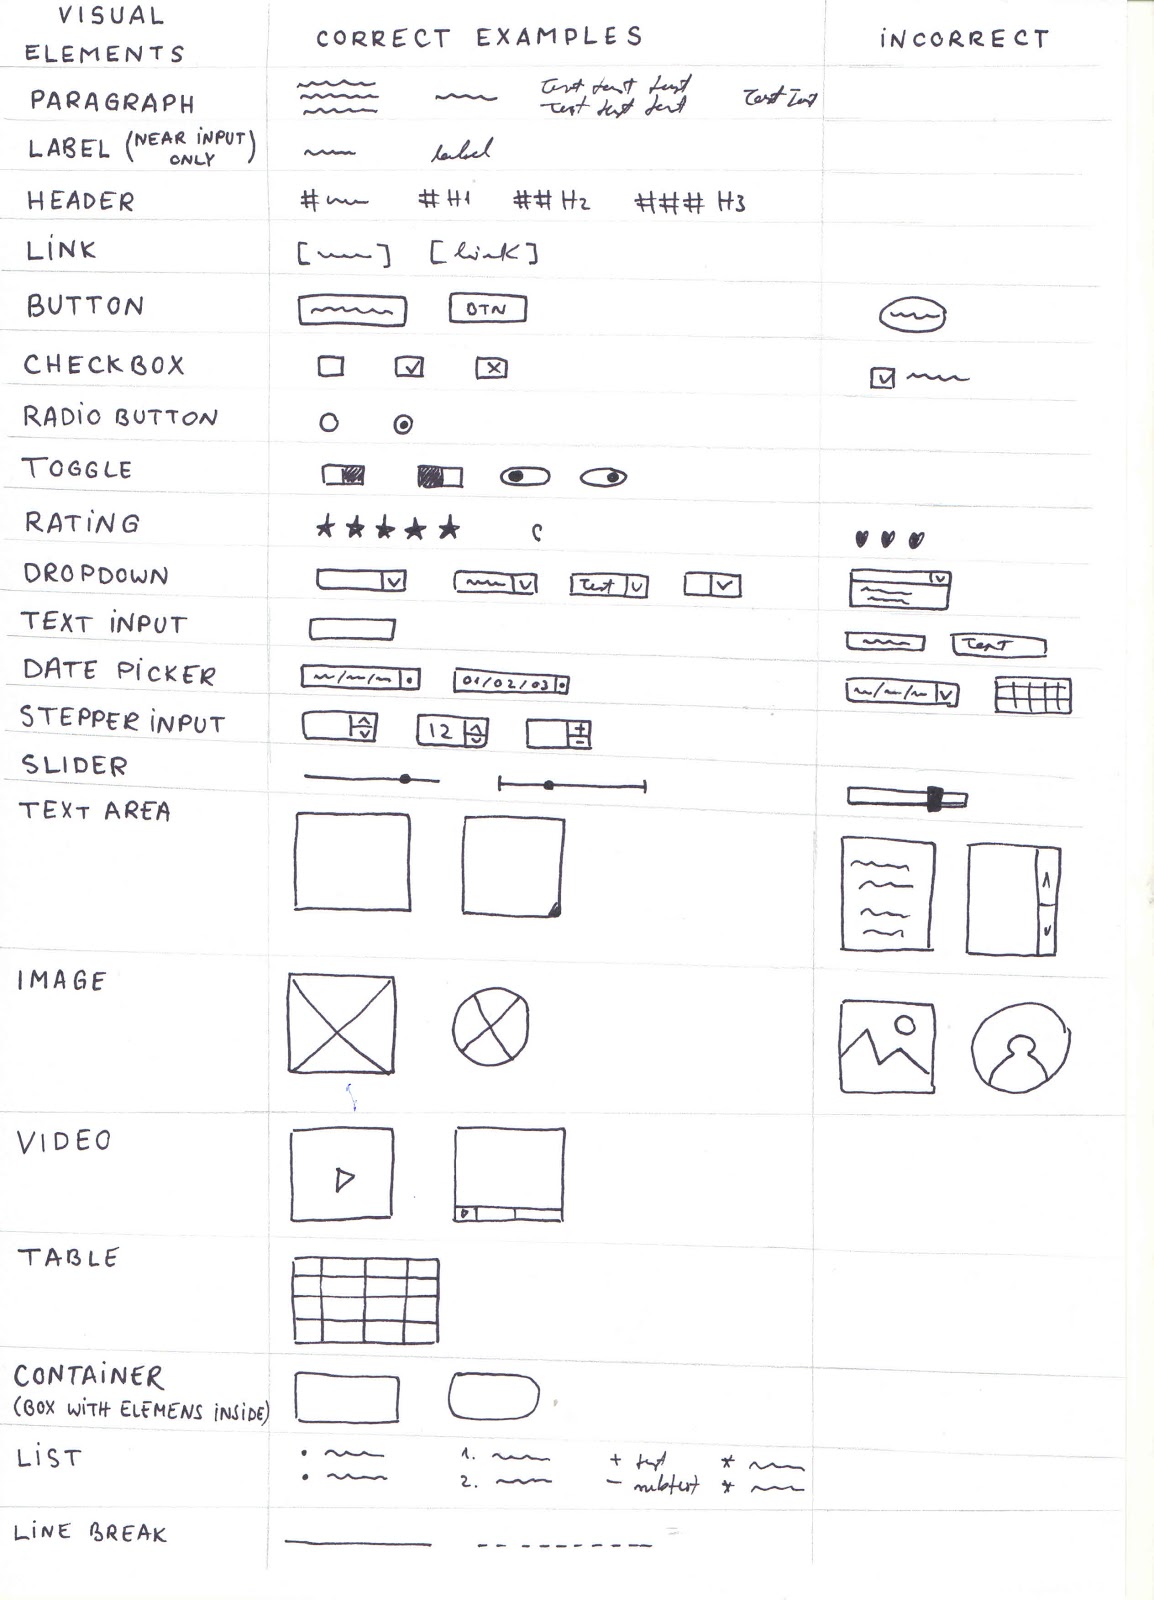 VISUAL
ELEMENTS
CORRECT EXAMPLES
INCORRECT
PARAGRAPH
Text text text
Text text text
Text Text
LABEL (NEAR INPUT
ONLY)
label
HEADER
# #H1 ##H2 ###H3
LINK
[link]
BUTTON
BTN
CHECKBOX
RADIO BUTTON
TOGGLE
RATING
DROPDOWN
Text
TEXT INPUT
Text
DATE PICKER
01/02/03
STEPPER INPUT
12
+
-
SLIDER
TEXT AREA
IMAGE
VIDEO
TABLE
CONTAINER
(BOX WITH ELEMENS INSIDE)
LIST
1.
2.
+ text
- subtext
*
*
LINE BREAK